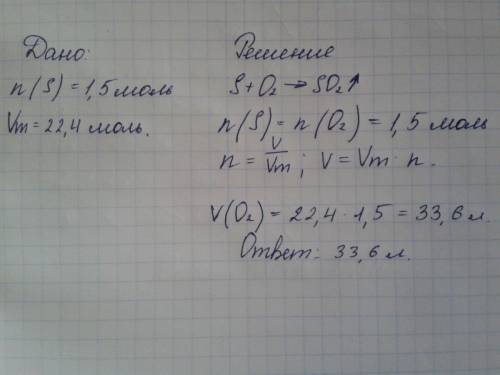 Дано:
n(S) = 1,5 моль
Vm = 22,4 моль.
Решение
S + O₂ → SO₂↑
n(S) = n(O₂) = 1,5 моль
n = V/Vm; V = Vm · n.
V(O₂) = 22,4 · 1,5 = 33,6 л.
Ответ: 33,6 л.